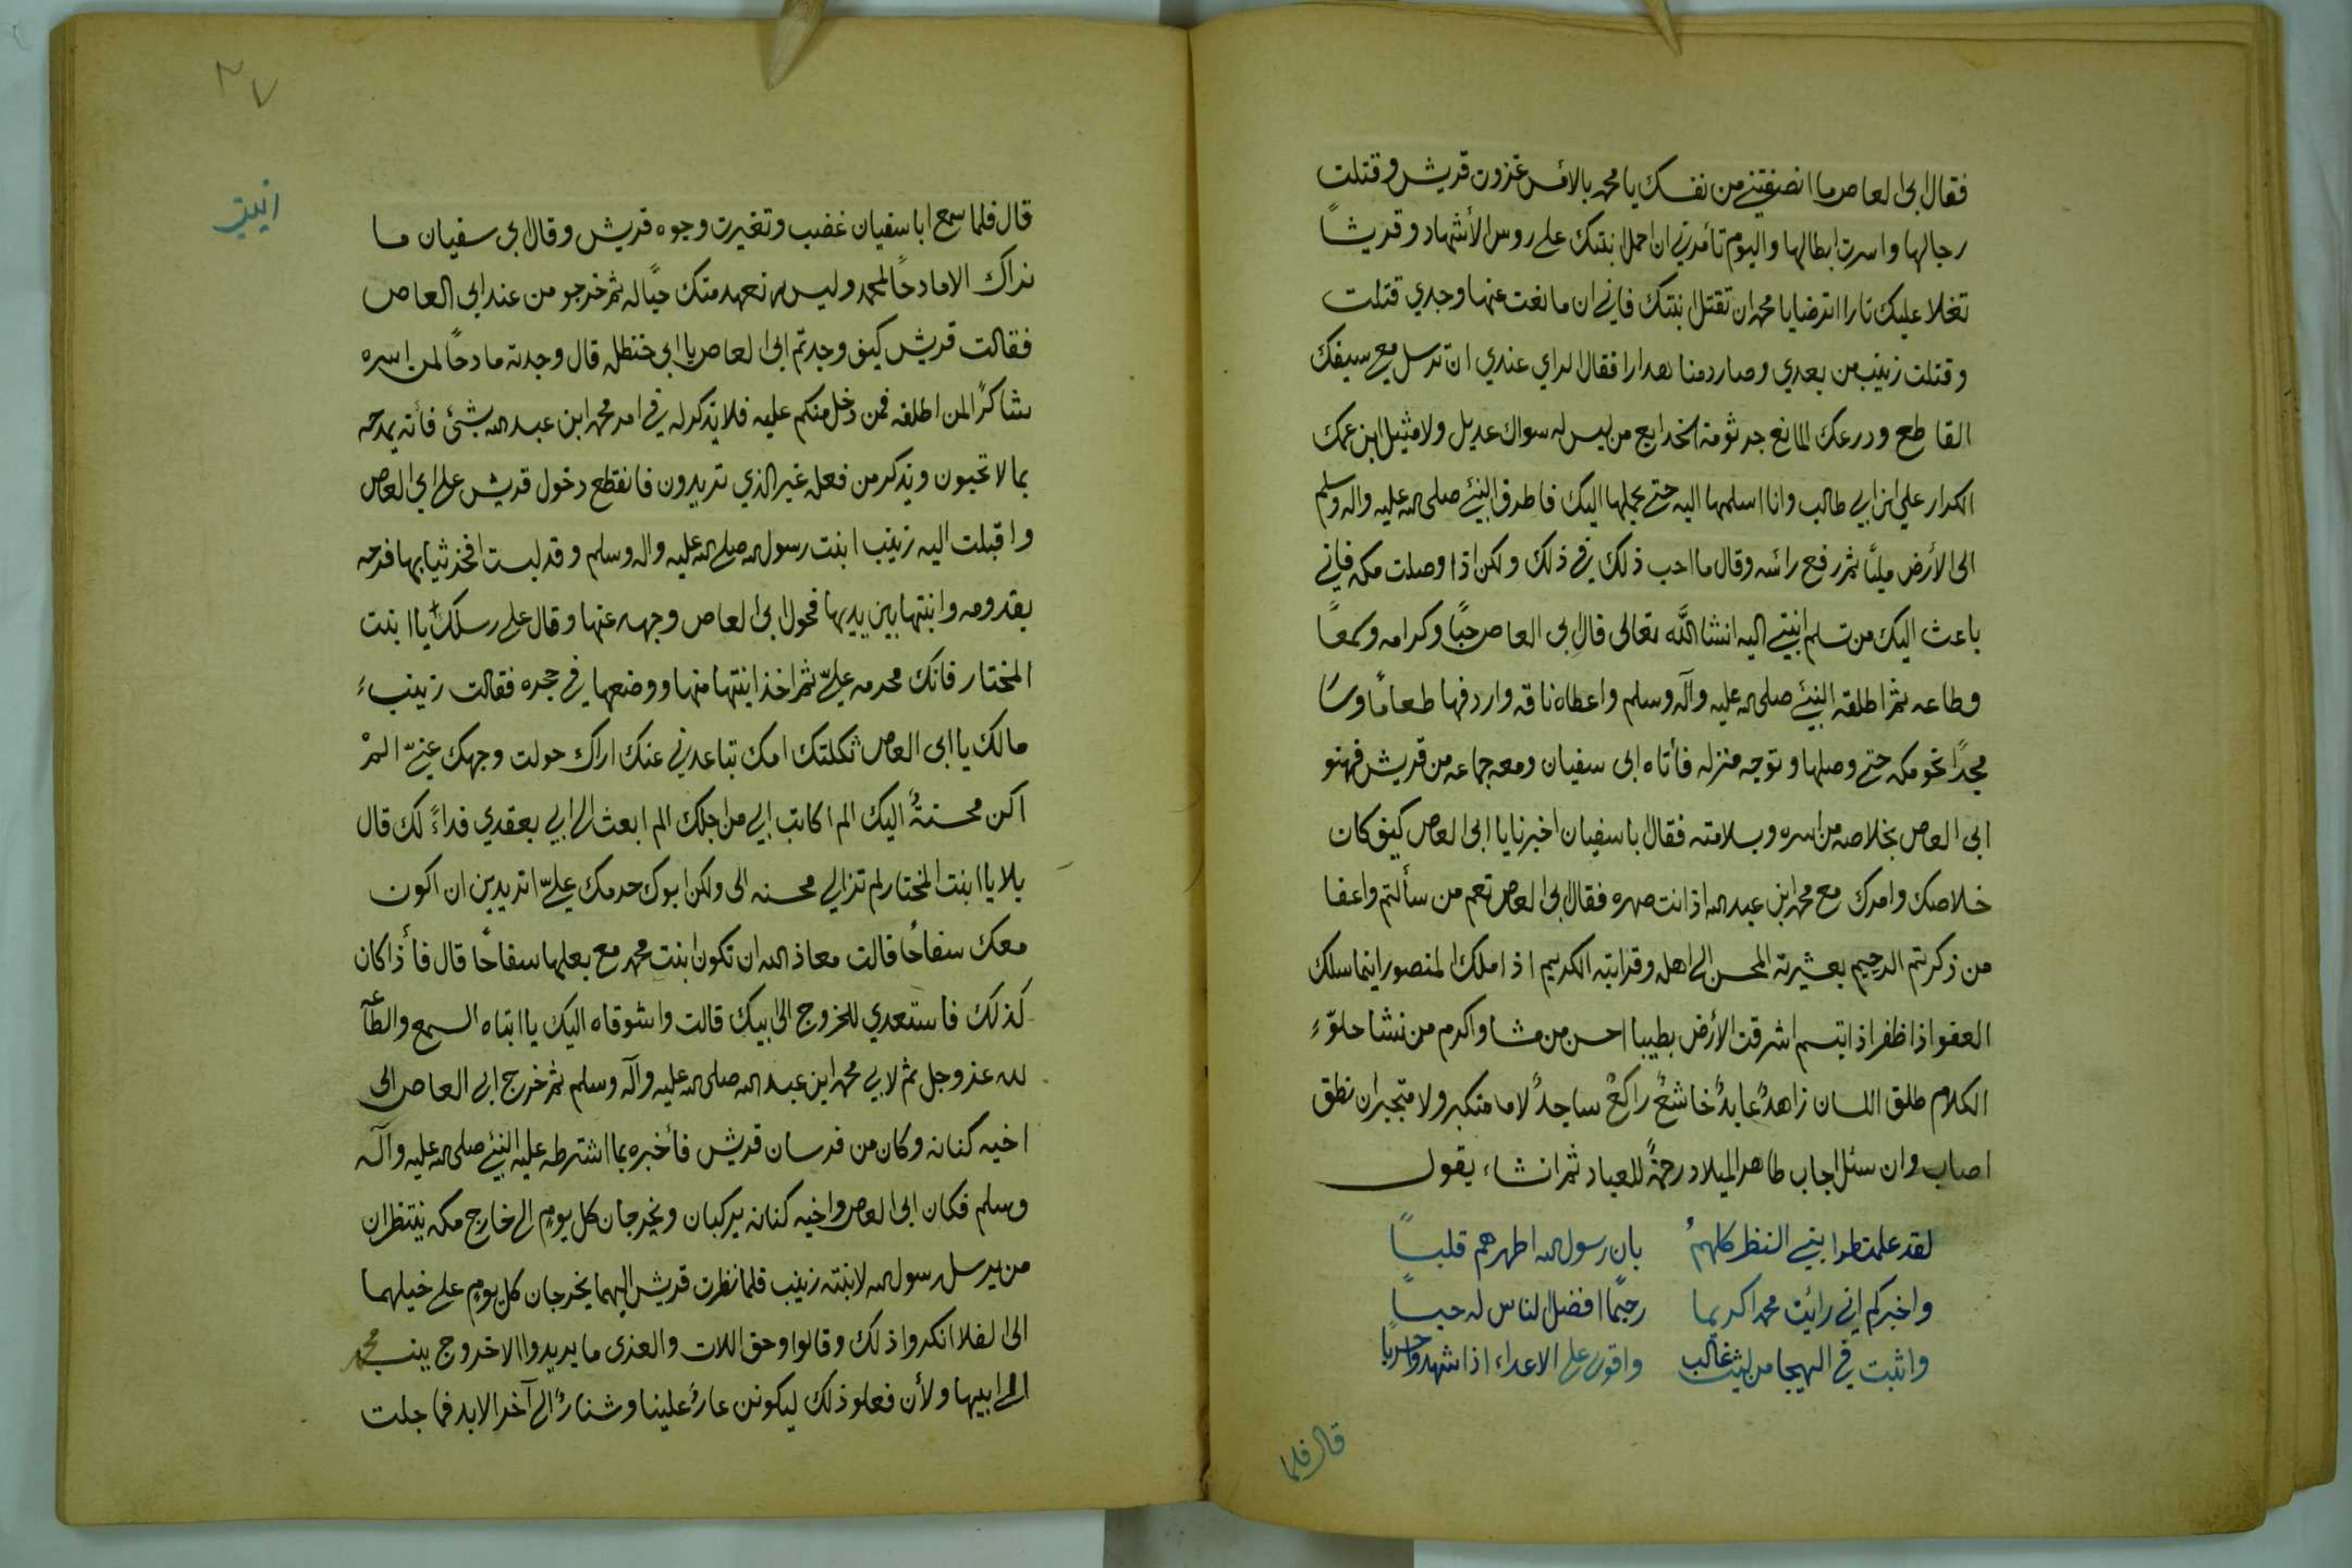 فقال ابى العاص ما انصفتني من نفسك يا محمد بالأمس غزوت قريش وقتلت
رجالها واسرت ابطالها واليوم تأمرني ان احمل ابنتك على روس الأشهاد وقريشاً
تغلا عليك نارا اترضا يا محمد ان تقتل بنتك فاني ان مانعت عنها وجدي قتلت
وقتلت زينب من بعدي وصار دمنا هدارا فقال الراي عندي ان ترسل مع سيفك
القاطع ودرعك المانع جرثومة الخدايع من ليس له سواك عديل ولا مثيل ابن عمك
الكرار علي ابن ابي طالب وانا اسلمها اليه حتى يحملها اليك فاطرق النبي صلى الله عليه واله وسلم
الى الأرض مليًّا ثم رفع رأسه وقال ما احب ذلك في ذلك ولكن اذا وصلت مكه فإني
باعث اليك من تسلم ابنتي اليه انشا اللّه تعالى قال ابى العاص حبًا وكرامه وسمعاً
وطاعه ثم اطلقه النبي صلى الله عليه وآله وسلم واعطاه ناقه واردفها طعامًا وسار
مجدًا نحو مكه حتى وصلها وتوجه منزله فأتاه ابى سفيان ومعه جماعه من قريش فهنو
ابى العاص بخلاصه من اسره وبسلامته فقال باسفيان اخبرنا يا ابى العاص كيف كان
خلاصك وامرك مع محمد ابن عبدالله اذ انت صهره فقال ابى العاص نعم من سألتم واعفا
من ذكرتم الرحيم بعشيرته المحسن الى اهله وقرابته الكريم اذا ملك المنصور اينما سلك
العفو اذا ظفر اذا ابتسم اشرقت الأرض بطيبا احسن من مشا واكرم من نشا حلوّ
الكلام طلق اللسان زاهدٌ عابدٌ خاشعٌ راكعٌ ساجدٌ لا متكبر ولا متجبر ان نطق
اصاب وان سئل اجاب طاهر الميلاد رحمةً للعباد ثم انشاء يقول
لقد علمت ابنى النظر كلهمُ    بان رسول الله اطهرهم قلبــاً
واخبركم اني رائيت محمدا كريما    رحيمًا افضل الناس له حبــاً
واثبت في الهيجا من ليث غالب    واقوى على الاعداء اذا شهدوا حربًا
قال فلما
٣٧
ابنتي
قال فلما سمع ابا سفيان غضب وتغيرت وجوه قريش وقال ابى سفيان ما
نراك الا مادحًا لمحمد وليس نعهد منك حبًّا له ثم خرجو من عند ابى العاص
فقالت قريش كيف وجدتم ابى العاص يا ابى حنظله قال وجدته مادحًا لمن اسره
شاكرًا لمن اطلقه فمن دخل منكم عليه فلا يذكر له في امر محمد ابن عبدالله بشئ فأنه يمدحه
بما لا تحبون ويذكر من فعله غير الذي تريدون فانقطع دخول قريش على ابى العاص
واقبلت اليه زينب ابنت رسول الله صلى الله عليه واله وسلم وقد لبست افخر ثيابها فرحه
بقدومه وابنتها بين يديها فحول ابى العاص وجهه عنها وقال على رسلك يا ابنت
المختار فانك محرمه عليّ ثم اخذ ابنتها منها ووضعها في حجره فقالت زينب
مالك يا ابى العاص ثكلتك امك تباعدني عنك اراك حولت وجهك عنيّ المْ
اكن محسنةً اليك الم اكاتب ابي من اجلك الم ابعث الى ابي بعقدي فداءً لك قال
بلا يا ابنت المختار لم تزالي محسنه الى ولكن ابوك حرمك عليّ اتريدين ان اكون
معك سفاحًا قالت معاذ الله ان تكون ابنت محمد مع بعلها سفاحًا قال فأذا كان
كذلك فاستعدي للخروج الى ابيك قالت واشوقاه اليك يا ابتاه السمع والطآعه
لله عز وجل ثم لابي محمد ابن عبدالله صلى الله عليه وآله وسلم ثم خرج ابى العاص الى
اخيه كنانه وكان من فرسان قريش فأخبره بما اشترطه عليه النبي صلى الله عليه وآله
وسلم فكان ابى العاص واخيه كنانه يركبان ويخرجان كل يوم الى خارج مكه ينتظران
من يرسل رسول الله لابنته زينب فلما نظرت قريش اليهما يخرجان كل يوم على خيلهما
الى الفلا انكروا ذلك وقالوا وحق اللات والعزى ما يريدوا الا خروج بنيت محمد
الى ابيها ولأن فعلو ذلك ليكونن عارٌ علينا وشنارٌ الى آخر الابد فما جلت